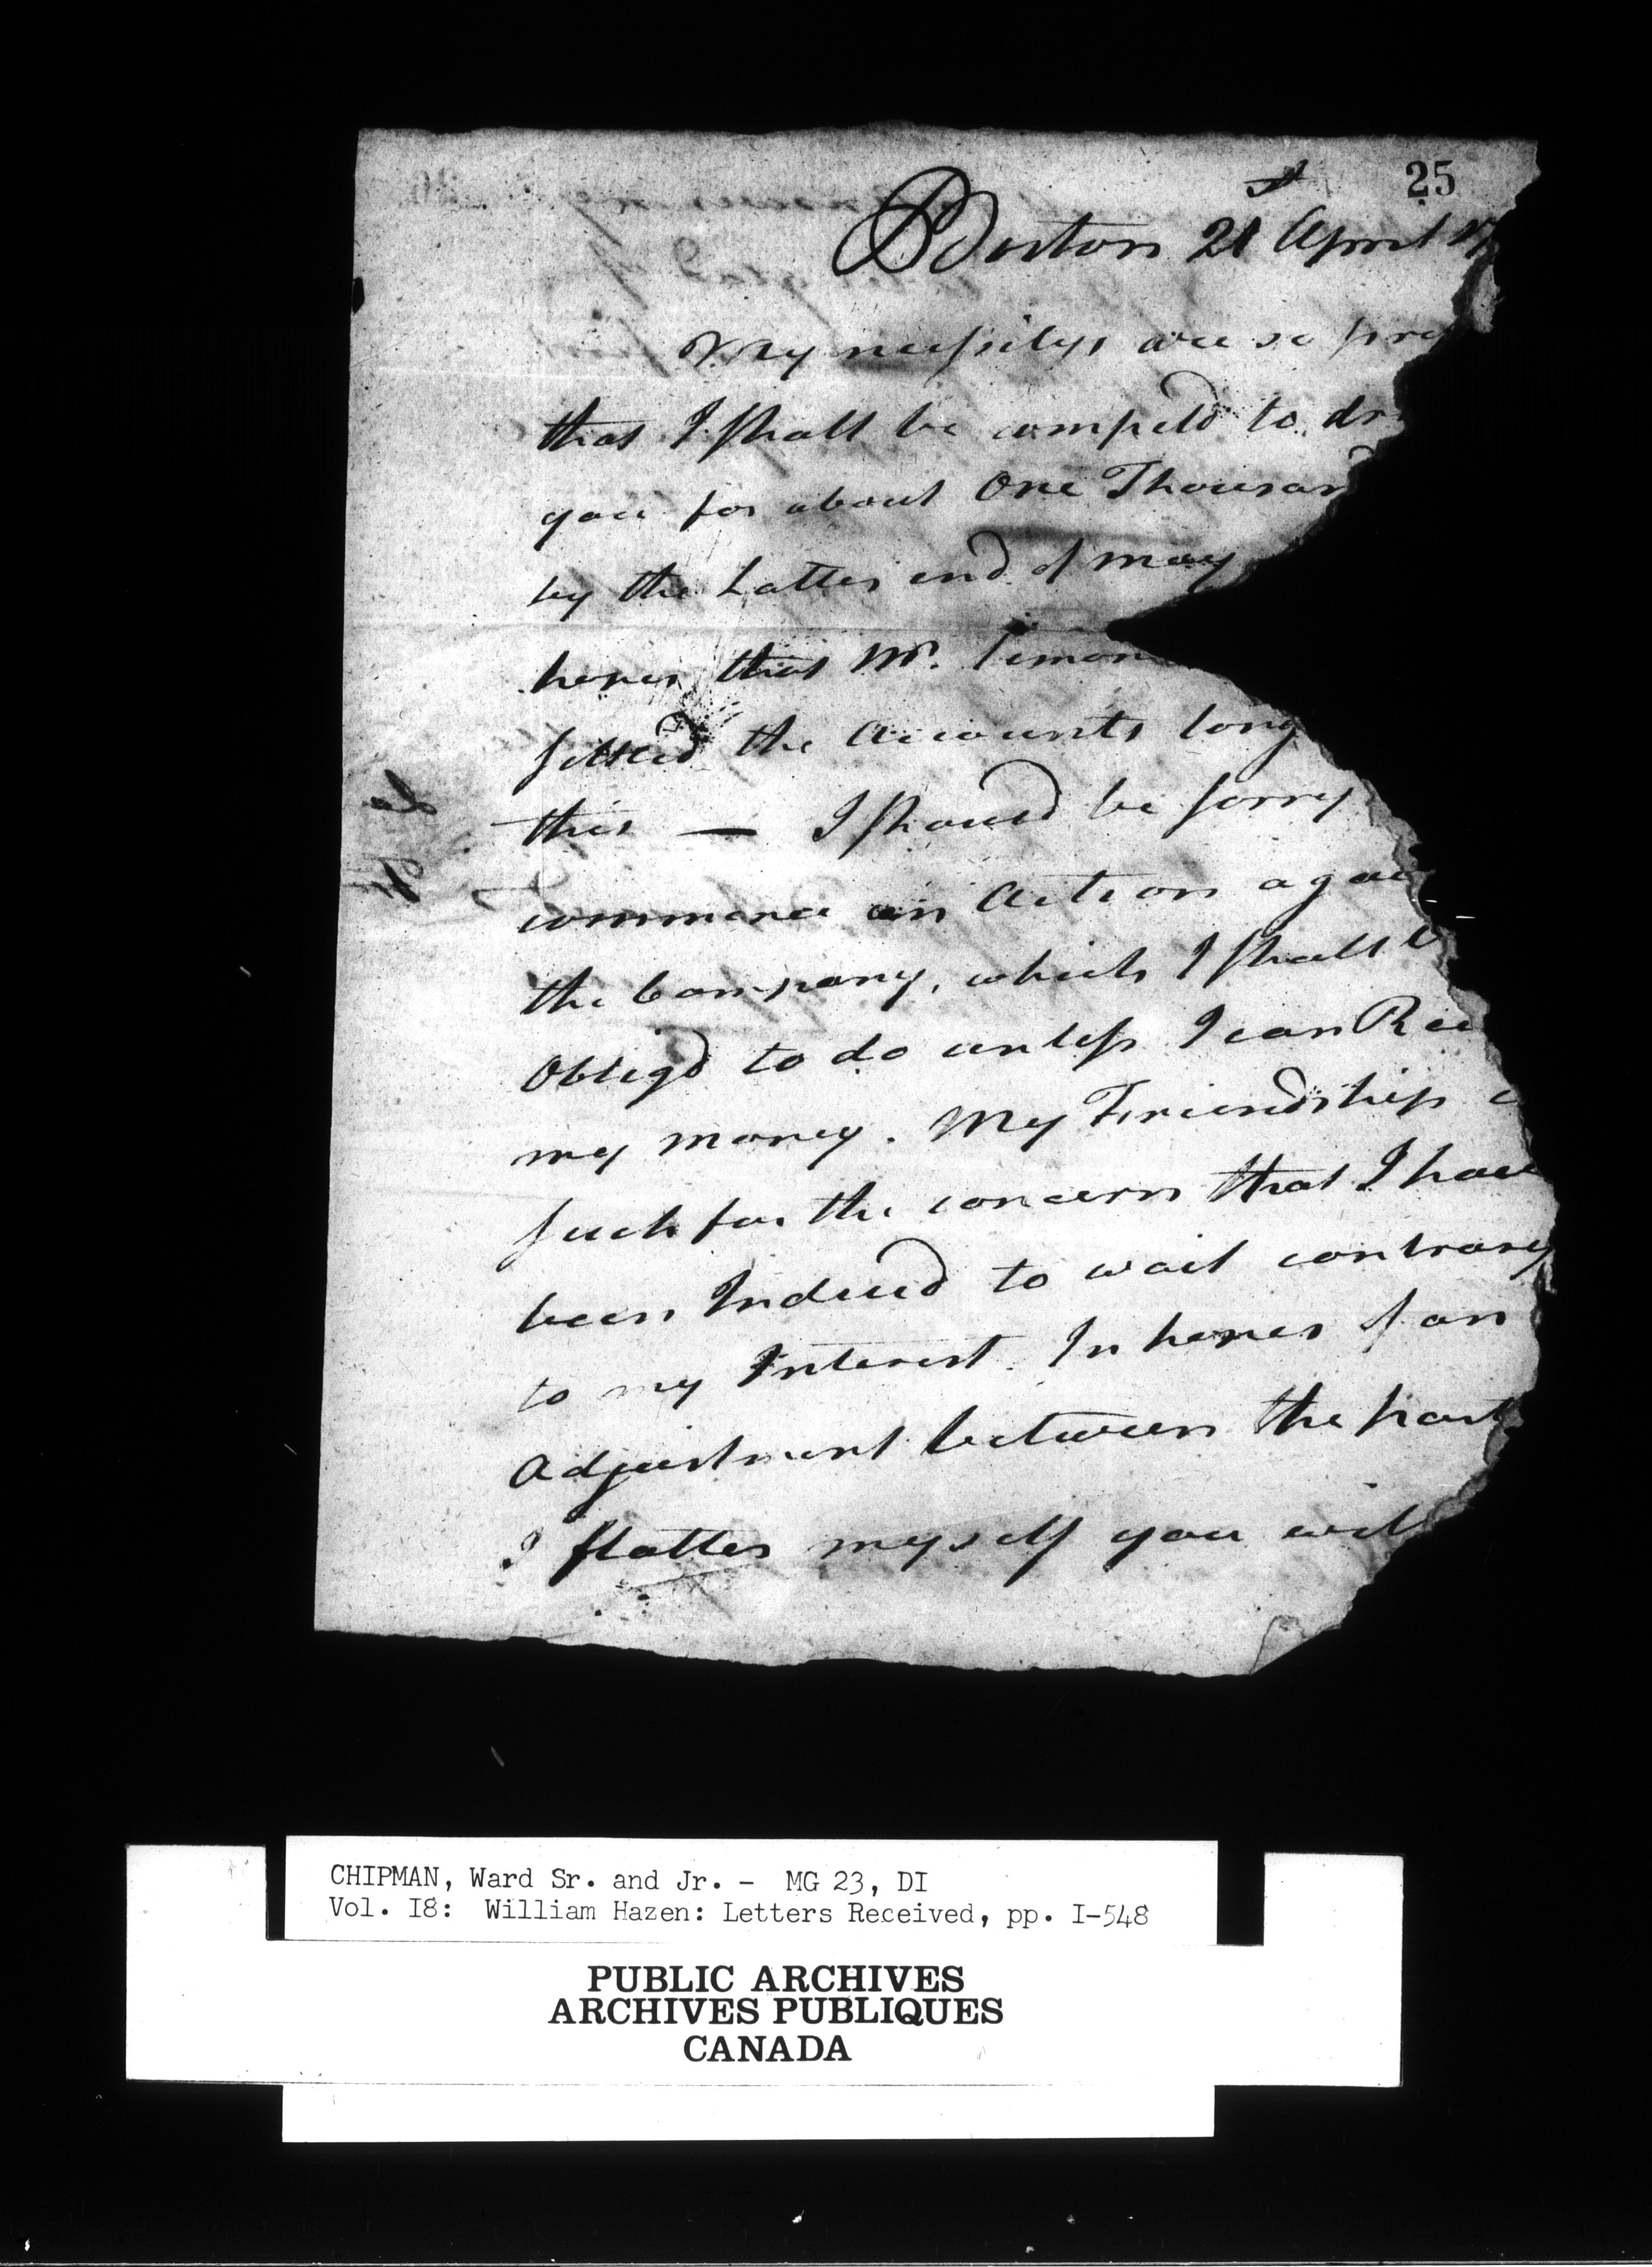 25
Boston 21st April 17
My necessitys are so pre
that I shall be compeld to dr
you for about One Thousand
by the Latter end of may
hopes that Mr. Simon
settled the Accounts long
this — I should be sorry
commence an Action again
the Company, which I shall b
Obligd to do unless I can Rec
my money. My Friendship
such for the concern that I have
been Induced to wait contrary
to my Interest. In hopes of an
Adjustment between the part
I flatter myself you will
CHIPMAN, Ward Sr. and Jr. - MG 23, DI
Vol. I8: William Hazen: Letters Received, pp. I-548
PUBLIC ARCHIVES
ARCHIVES PUBLIQUES
CANADA